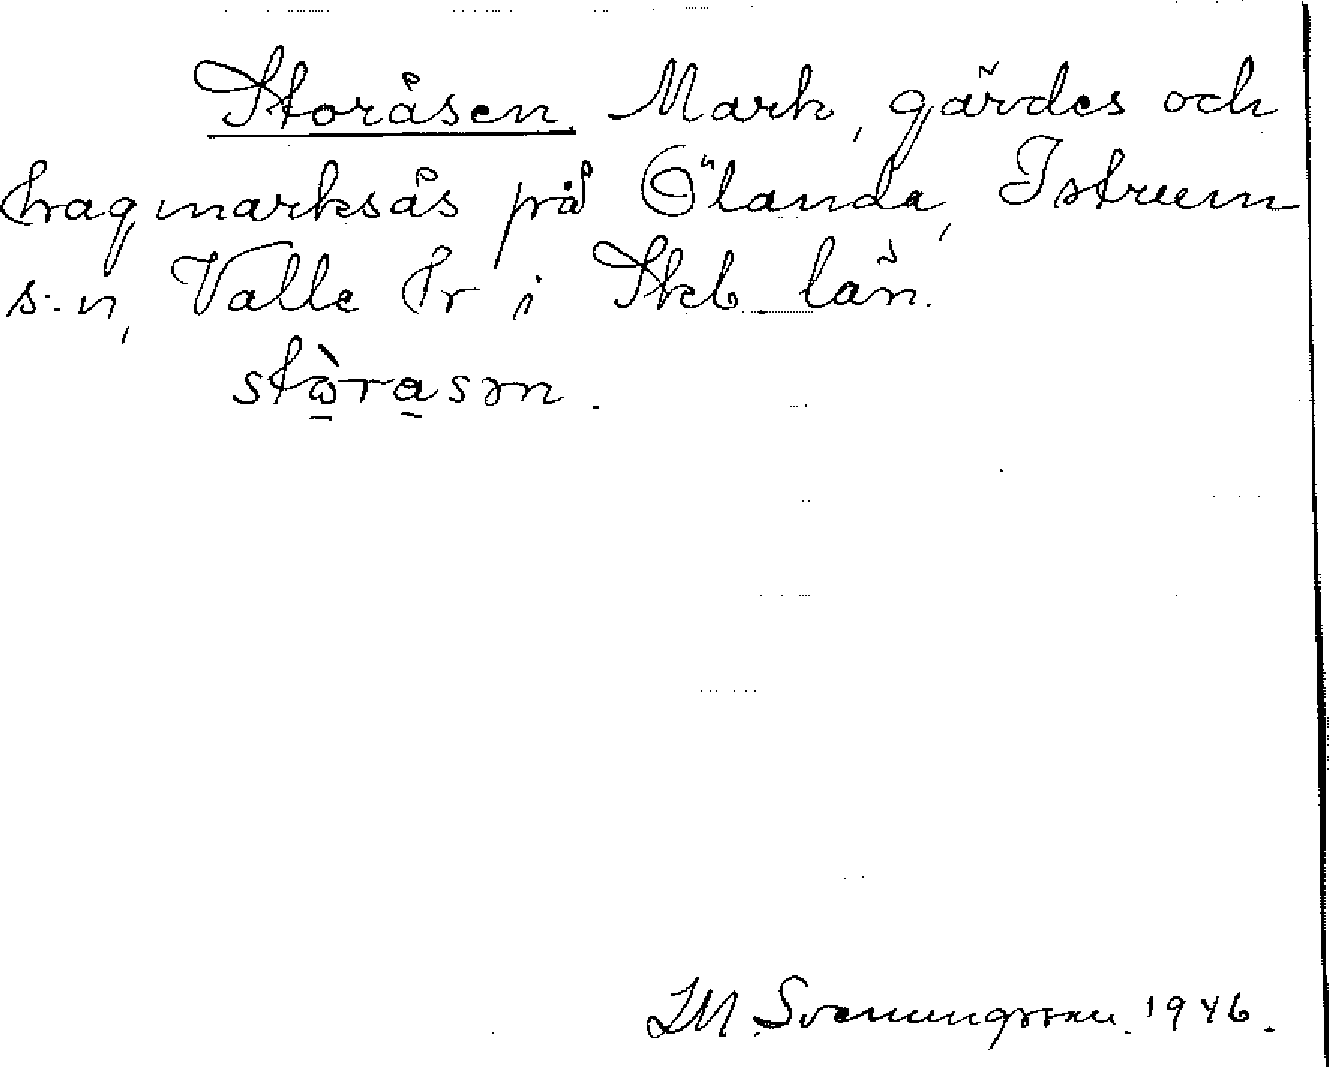 Storåsen. Mark, gärdes och
hagmarksås på Ölanda, Istrum
s:n, Valle hr i Skb. län.
stɷ̀rasən.
LM. Svenungsson. 1946.